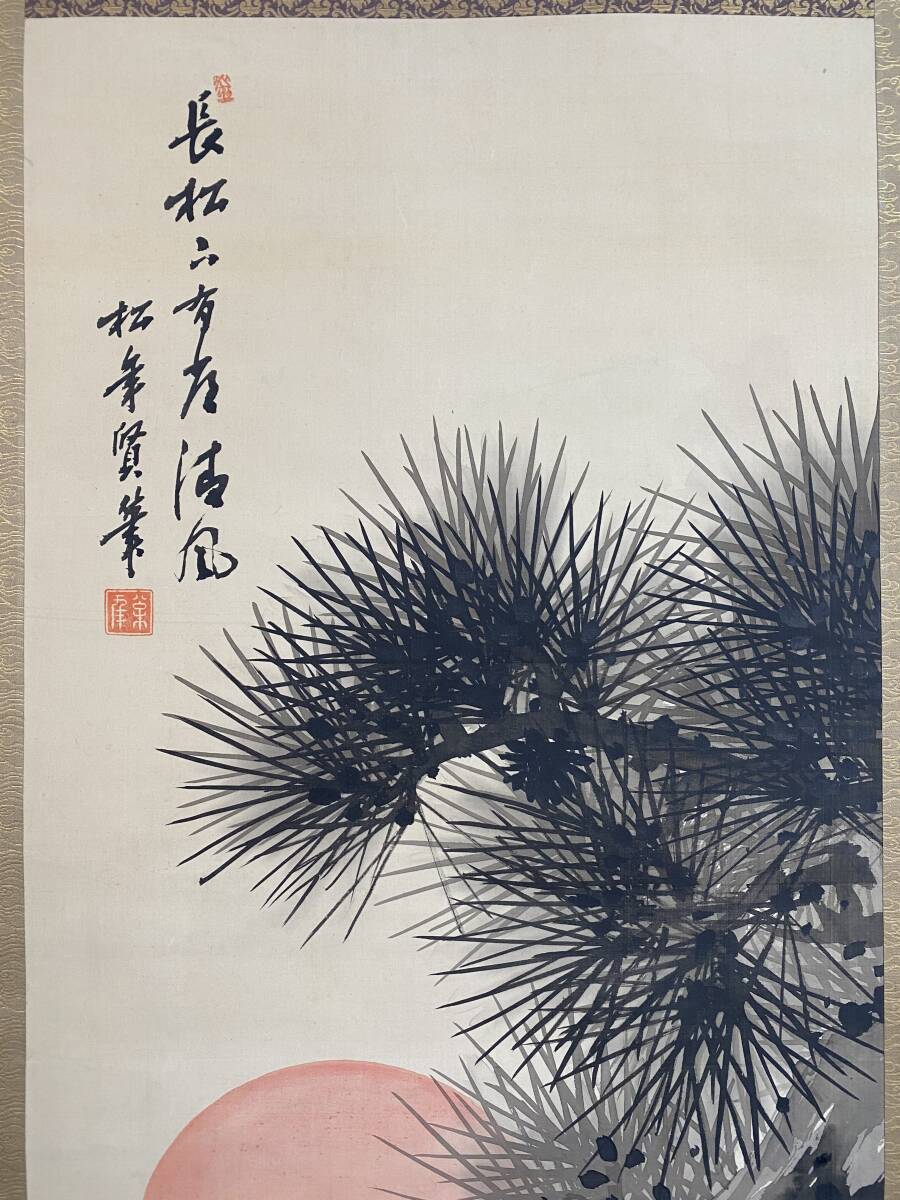 長松下有清風
松年賢筆